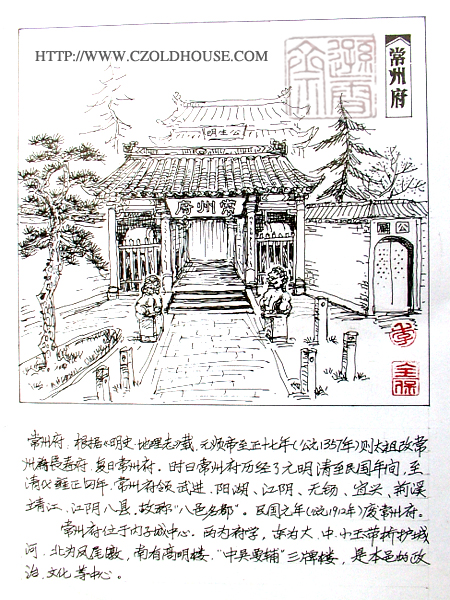 HTTP://WWW.CZOLDHOUSE.COM
常州府
公生明
常州府
常州府,根据《明史·地理志》载,元顺帝至正十七年(公元1357年)则太祖改常
州路长春府,复曰常州府。时曰常州府历经了元明清至民国年间,至
清代雍正四年,常州府领武进、阳湖、江阴、无锡、宜兴、荆溪
靖江、江阴八县,故称“八邑名郡”。民国元年(公元1912年)废常州府。
常州府位于内子城中心。西为府学,东为大、中、小玉带桥护城
河,北为凤尾墩,南有高明楼、“中吴要辅”三牌楼,是本邑的政
治、文化等中心。